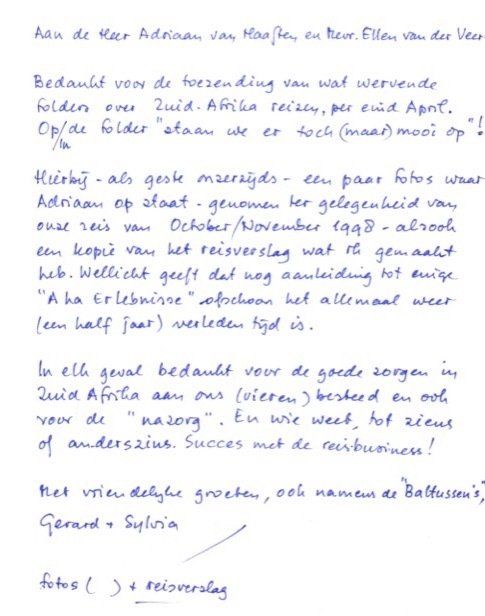 Aan de Heer Adriaan van Haaften en Mevr. Ellen van der Veer
Bedankt voor de toezending van wat wervende
folders over Zuid-Afrika reizen, per eind April.
Op/in de folder "staan we er toch (maar) mooi op"!
Hierbij - als geste onzerzijds - een paar fotos waar
Adriaan op staat - genomen ter gelegenheid van
onze reis van October/November 1998 - alsook
een kopie van het reisverslag wat ik gemaakt
heb. Wellicht geeft dat nog aanleiding tot enige
"Aha Erlebnisse" ofschoon het allemaal weer
(een half jaar) verleden tijd is.
In elk geval bedankt voor de goede zorgen in
Zuid Afrika aan ons (vieren) besteed en ook
voor de "nazorg". En wie weet, tot ziens
of anderszins. Succes met de reisbusiness!
Met vriendelijke groeten, ook namens de "Baltussen's",
Gerard + Sylvia
fotos ( ) + reisverslag